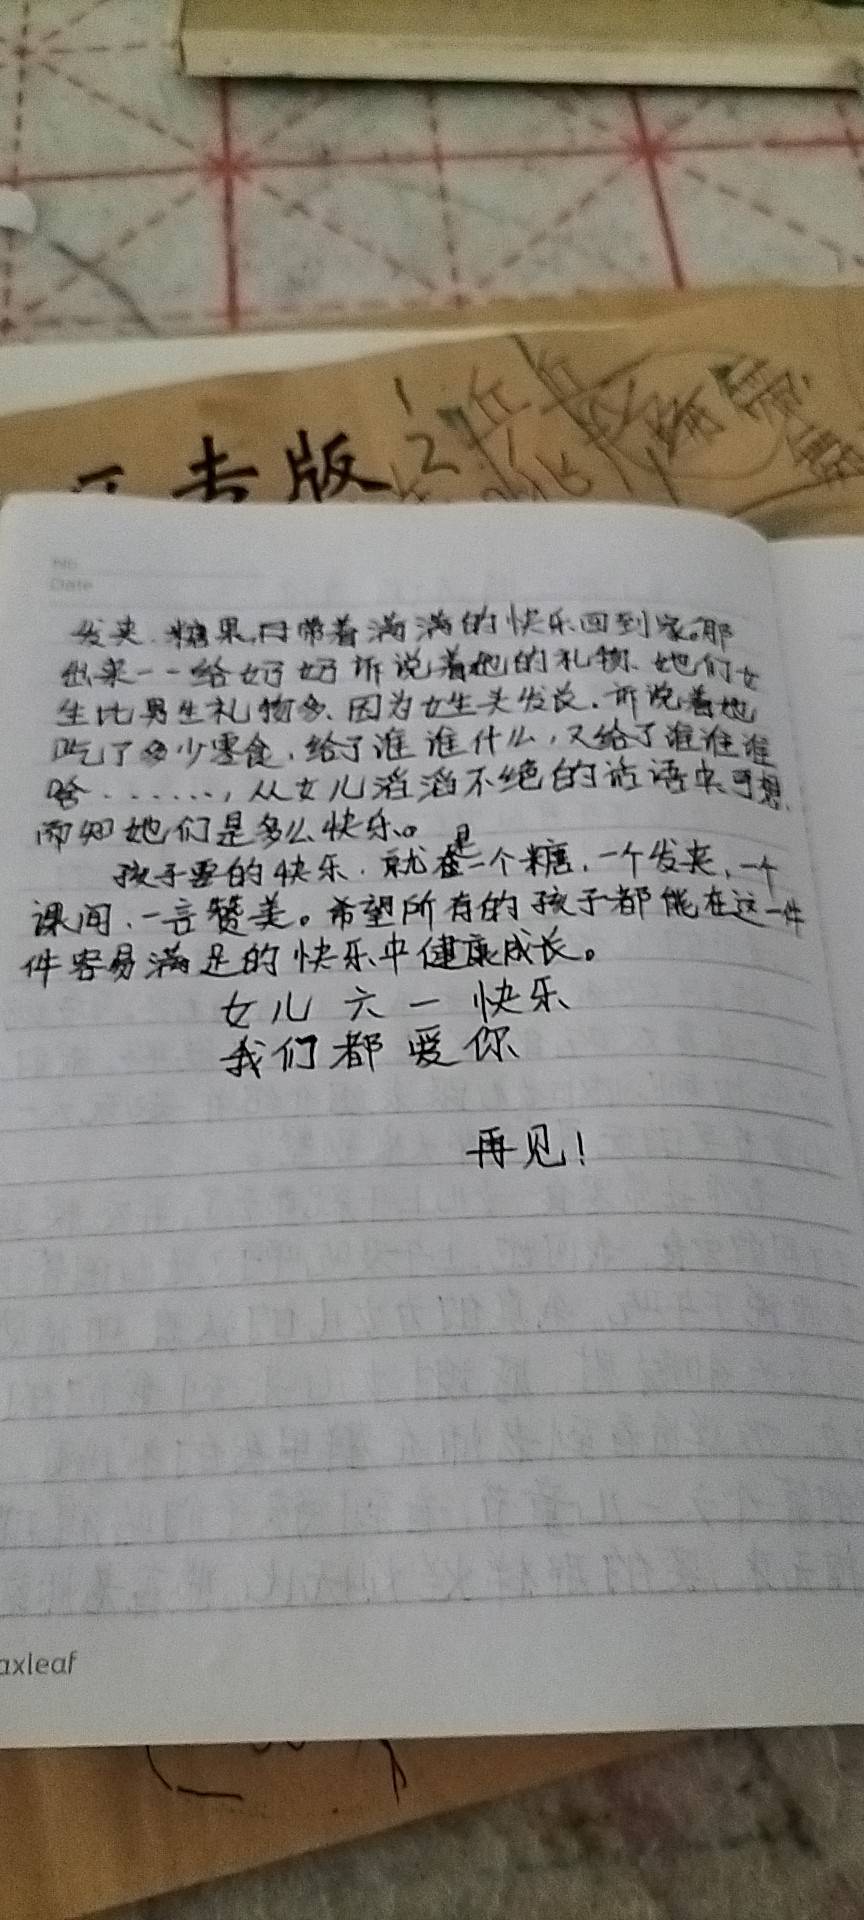 版
1
2
No.
Date
发夹.糖果,带着满满的快乐回到家。那
出来一一给奶奶诉说着她的礼物、她们女
生比男生礼物多、因为女生头发长.诉说着她
吃了多少零食、给了谁谁什么,又给了谁谁谁
啥......,从女儿滔滔不绝的话语中可想
而知她们是多么快乐。
孩子要的快乐.就是一个糖.一个发夹,一个
课间、一言赞美。希望所有的孩子都能在这一件
件容易满足的快乐中健康成长。
女儿 六一 快乐
我们都爱你
再见!
axleaf